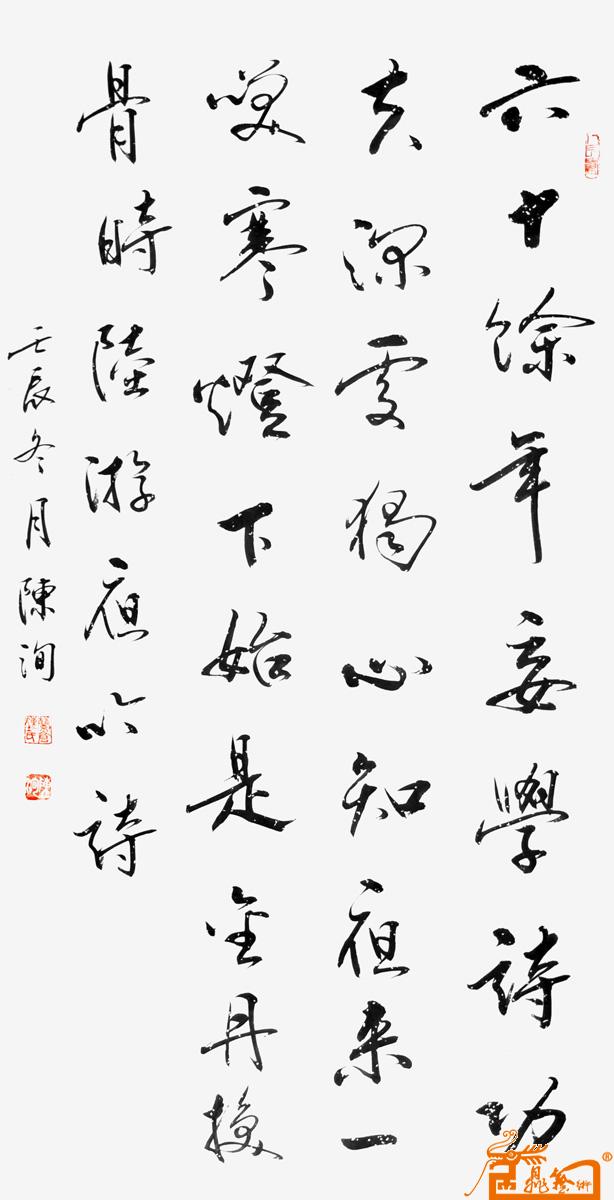 六十餘年妄學詩功
夫深處獨心知夜来一
咲寒燈下始是金丹換
骨時陸游夜吟詩
壬辰冬月陳洵